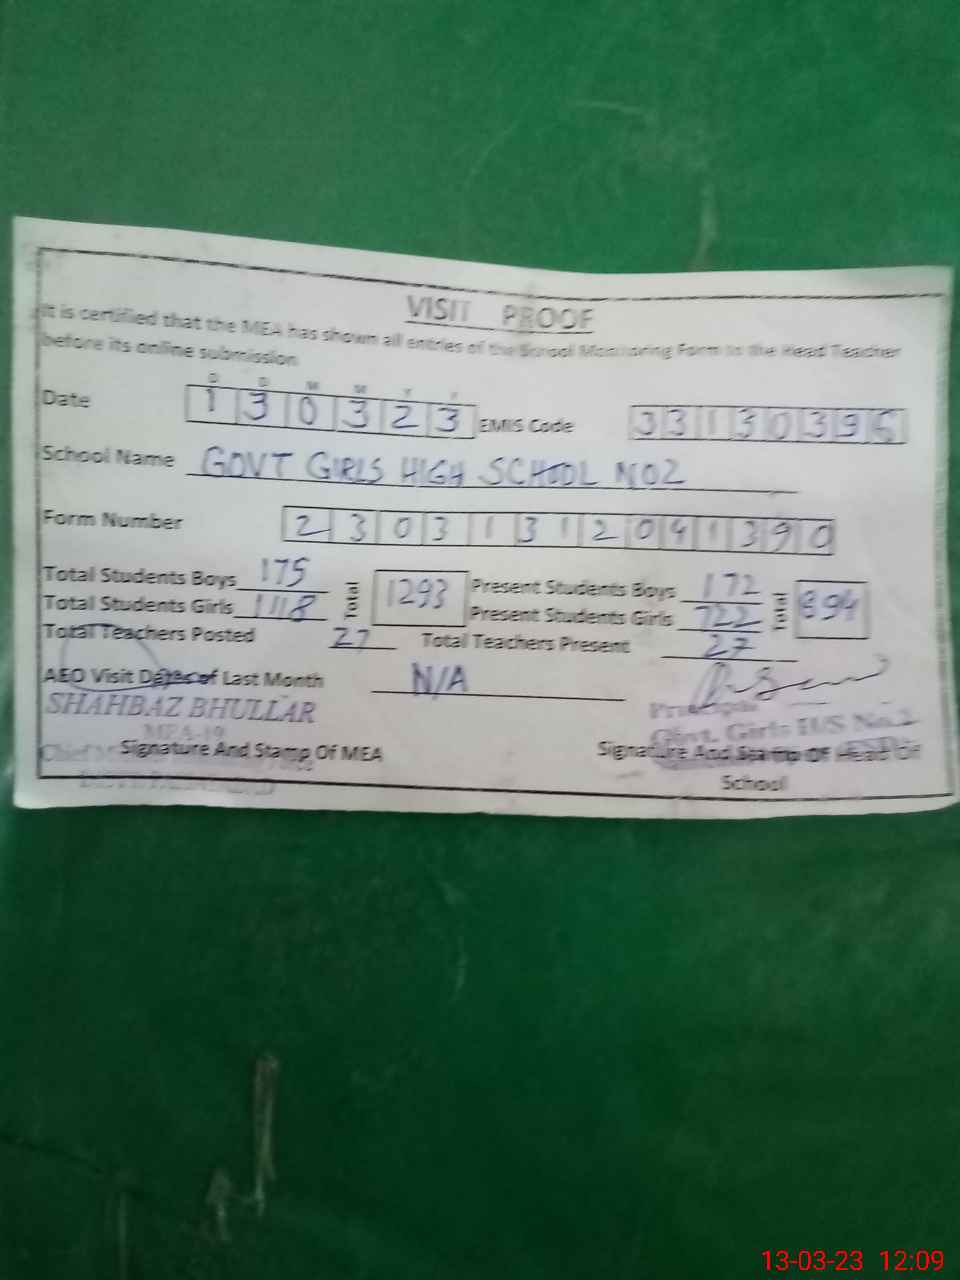 VISIT PROOF
It is certified that the MEA has shown all entries of the School Monitoring Form to the Head Teacher
before its online submission
D D M M Y Y
Date 1 3 0 3 2 3 EMIS Code 3 3 1 3 0 3 9 6
School Name GOVT GIRLS HIGH SCHOOL NO2
Form Number 2 3 0 3 1 3 1 2 0 4 1 3 9 0
Total Students Boys 175 Total 1293 Present Students Boys 172 Total 894
Total Students Girls 1118 Present Students Girls 722
Total Teachers Posted 27 Total Teachers Present 27
AEO Visit Dates of Last Month N/A
SHAHBAZ BHULLAR
MEA-19
Principal
Govt. Girls H/S No.2
Signature And Stamp Of MEA
Signature And Stamp Of Head Of
School
13-03-23 12:09